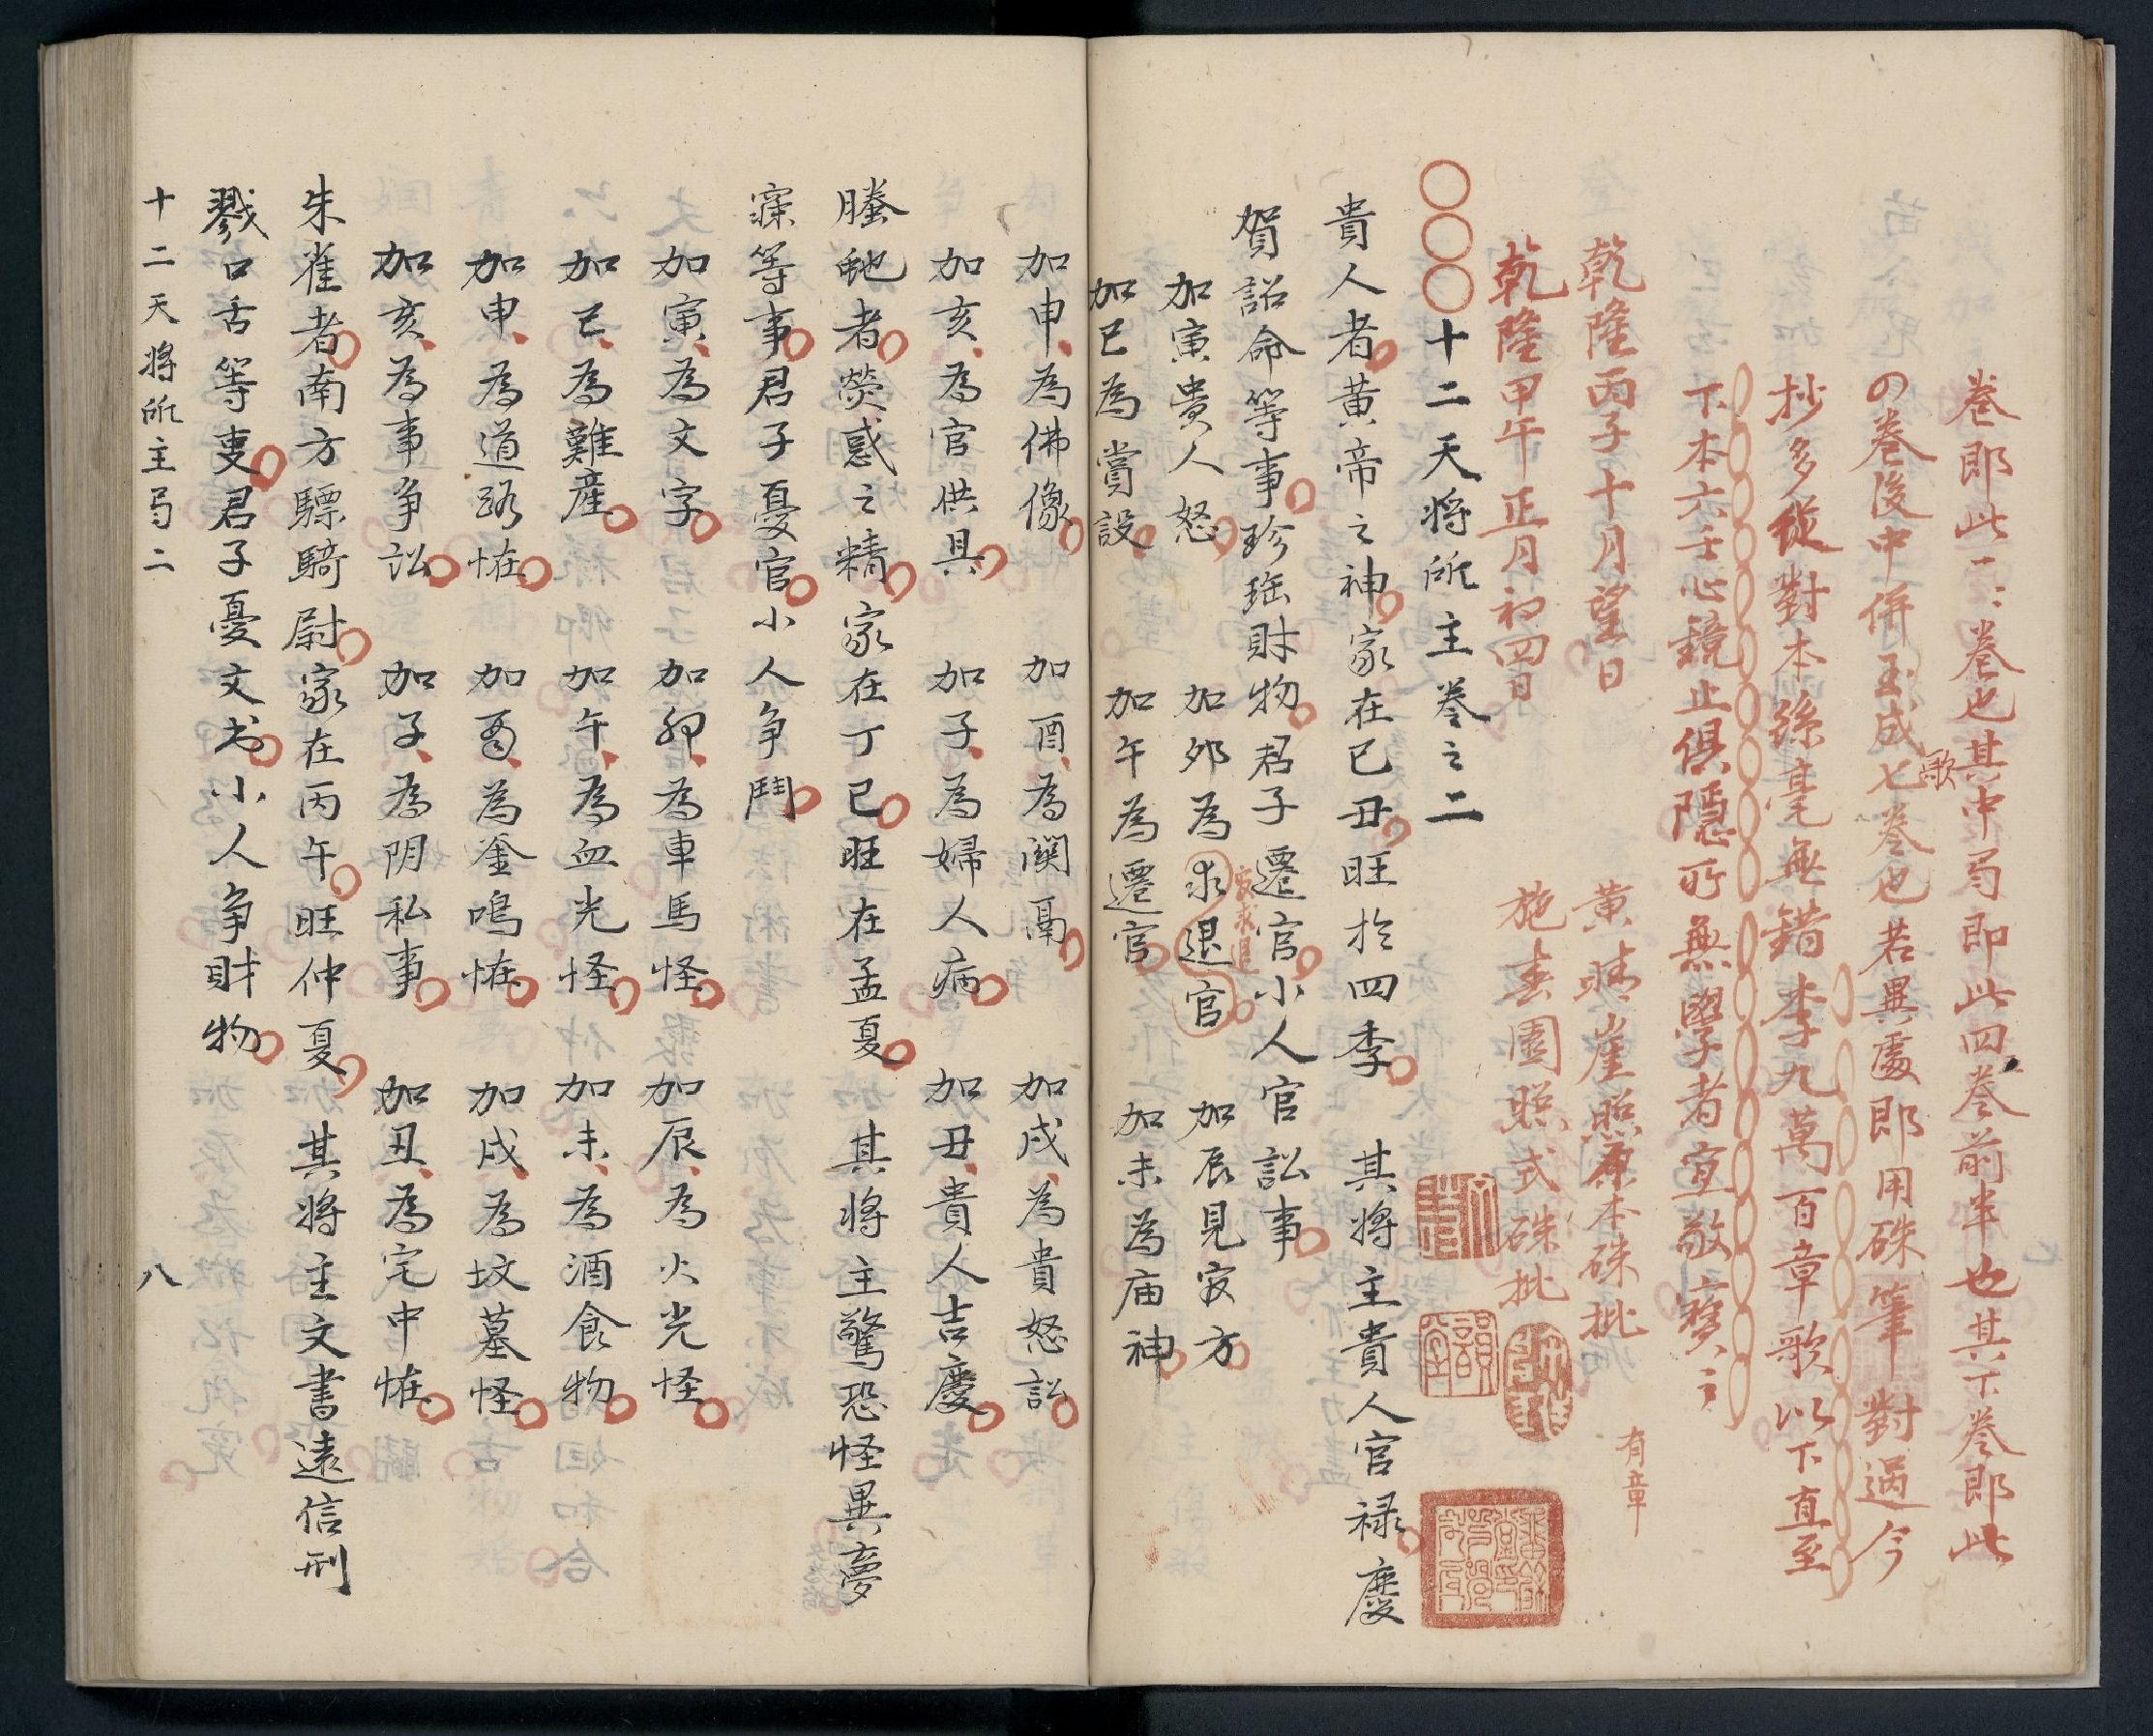 卷即此二:卷也其中局即此四卷前半也其下卷即此
の卷後中併玉成歌七卷也若異處即用硃筆對過今
抄多從對本絲毫無錯李九萬百章歌以下直至
下本六壬心鏡止俱隱所無學者宜敬寶:
乾隆丙子十月望日 黄晴崖照原本硃批 有章
乾隆甲午正月初四日 施春園照式硃批
〇〇〇十二天将所主卷之二
貴人者黄帝之神家在已丑旺於四季 其將主貴人官禄慶
賀詔命等事珍瑶財物君子遷官小人官訟事
加寅貴人怒 加夘為求退官 家求退 加辰見寃方
加巳為賞設 加午為遷官 加未為庙神
加申為佛像 加酉為閙鬲 加戍為貴怒訟
加亥為官供具 加子為婦人病 加丑貴人吉慶
螣虵者熒惑之精家在丁已旺在孟夏 其將主驚恐怪異夢
寐等事君子憂官小人争鬪
加寅為文字 加卯為車馬怪 加辰為火光怪
加已為難產 加午為血光怪 加未為酒食物
加申為道路恠 加酉為釜鳴恠 加戍為坟墓怪
加亥為事争訟 加子為阴私事 加丑為宅中恠
朱雀者南方驃騎尉家在丙午旺仲夏 其將主文書遠信刑
戮口舌等叓君子憂文书小人争財物
十二天將所主局二 八